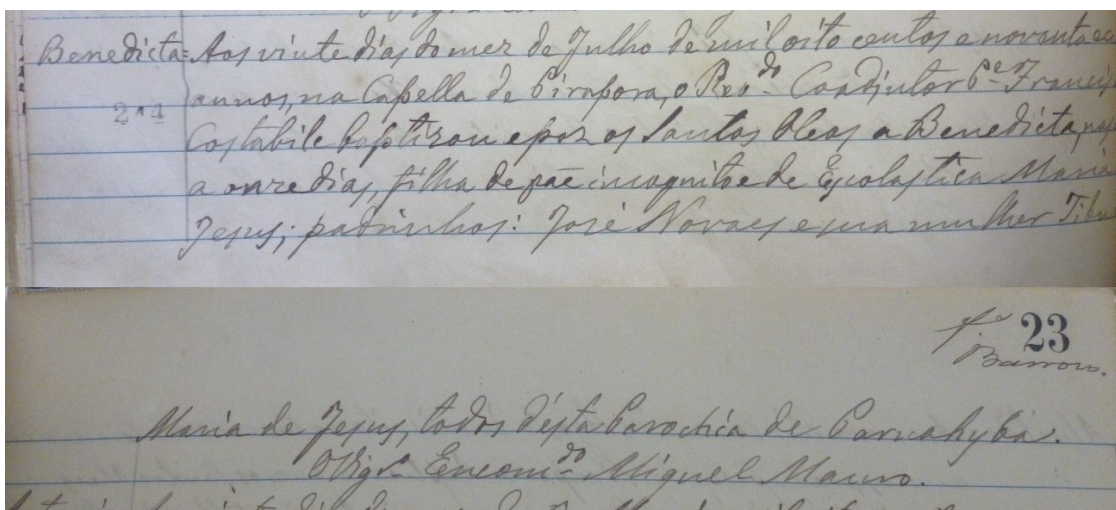 Benedicta = Aos vinte dias do mez de Julho de mil oito centos e noventa e
annos, na Capella de Pirapora, o Rev.do Coadjutor P.e Francis
Costabile baptizou e poz os Santos Oleos a Benedicta, nas
a onze dias, filha de pae incognito e de Escolastica Maria
Jesus; padrinhos: José Novaes e sua mulher
23
Barros.
Maria de Jesus, todos desta Parochia de Parnahyba.
O Vigr.o Encom.do Miguel Mauro.